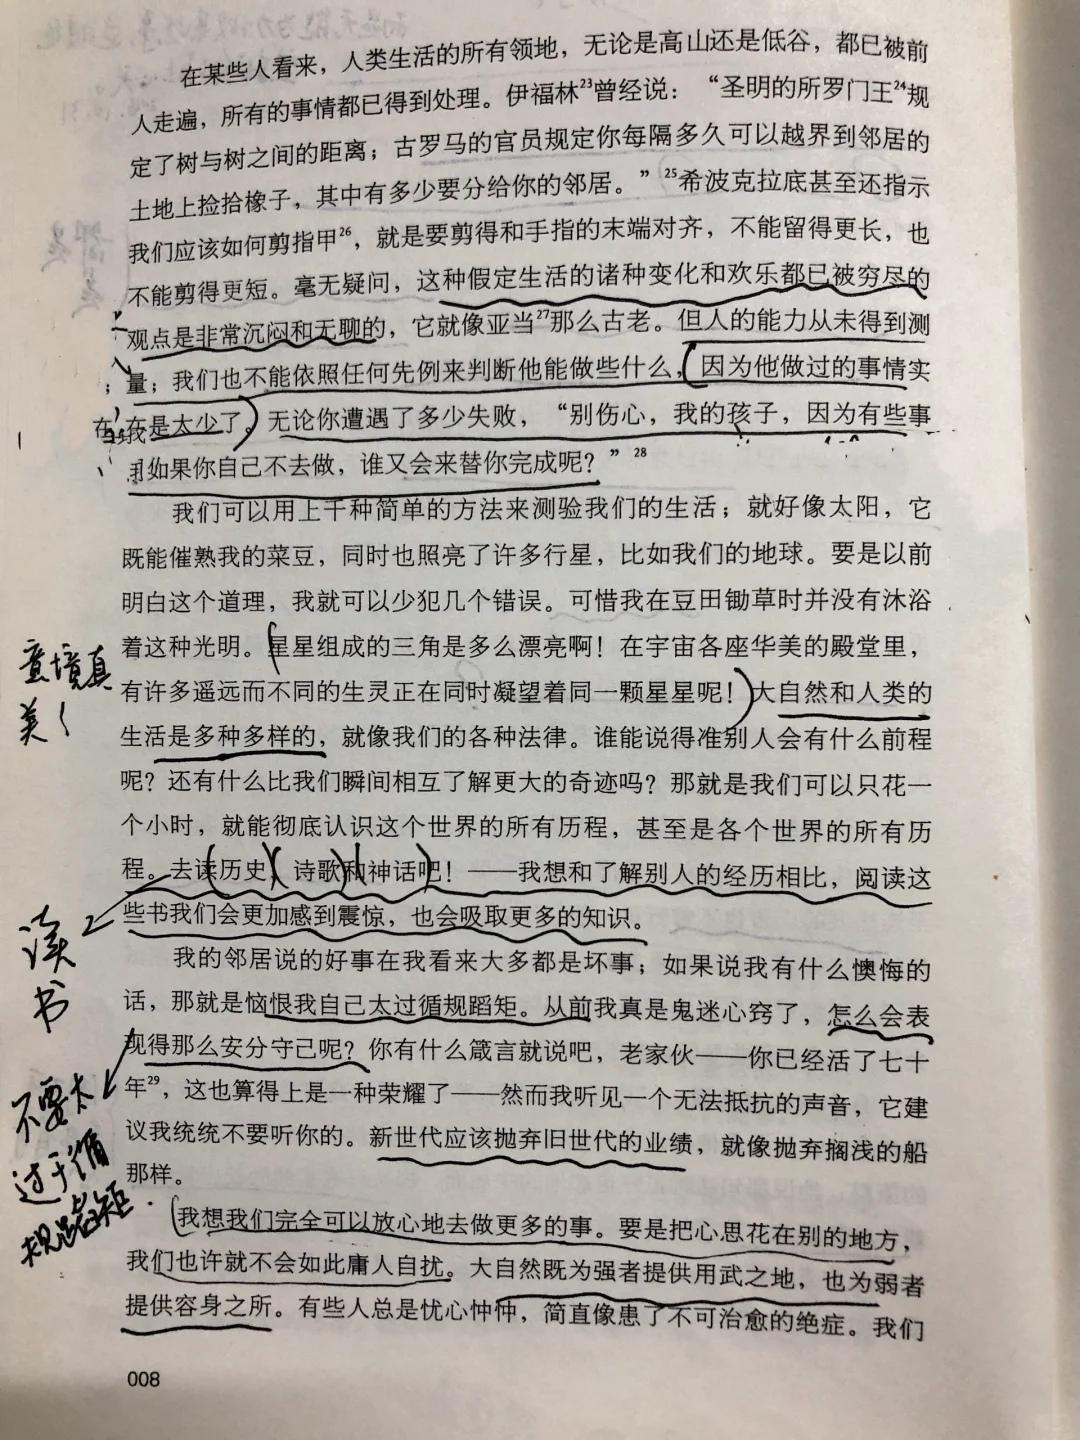 在某些人看来，人类生活的所有领地，无论是高山还是低谷，都已被前
人走遍，所有的事情都已得到处理。伊福林23曾经说：“圣明的所罗门王24规
定了树与树之间的距离；古罗马的官员规定你每隔多久可以越界到邻居的
土地上捡拾橡子，其中有多少要分给你的邻居。”25希波克拉底甚至还指示
我们应该如何剪指甲26，就是要剪得和手指的末端对齐，不能留得更长，也
不能剪得更短。毫无疑问，这种假定生活的诸种变化和欢乐都已被穷尽的
观点是非常沉闷和无聊的，它就像亚当27那么古老。但人的能力从未得到测
量；我们也不能依照任何先例来判断他能做些什么，因为他做过的事情实
在是太少了。无论你遭遇了多少失败，“别伤心，我的孩子，因为有些事
如果你自己不去做，谁又会来替你完成呢？”28
我们可以用上千种简单的方法来测验我们的生活；就好像太阳，它
既能催熟我的菜豆，同时也照亮了许多行星，比如我们的地球。要是以前
明白这个道理，我就可以少犯几个错误。可惜我在豆田锄草时并没有沐浴
着这种光明。星星组成的三角是多么漂亮啊！在宇宙各座华美的殿堂里，
意境真
有许多遥远而不同的生灵正在同时凝望着同一颗星星呢！大自然和人类的
美！
生活是多种多样的，就像我们的各种法律。谁能说得准别人会有什么前程
呢？还有什么比我们瞬间相互了解更大的奇迹吗？那就是我们可以只花一
个小时，就能彻底认识这个世界的所有历程，甚至是各个世界的所有历
程。去读历史、诗歌和神话吧！——我想和了解别人的经历相比，阅读这
些书我们会更加感到震惊，也会吸取更多的知识。
读
书
我的邻居说的好事在我看来大多都是坏事；如果说我有什么懊悔的
话，那就是恼恨我自己太过循规蹈矩。从前我真是鬼迷心窍了，怎么会表
现得那么安分守己呢？你有什么箴言就说吧，老家伙——你已经活了七十
年29，这也算得上是一种荣耀了——然而我听见一个无法抵抗的声音，它建
议我统统不要听你的。新世代应该抛弃旧世代的业绩，就像抛弃搁浅的船
那样。
不要太
过于循
规蹈矩.
我想我们完全可以放心地去做更多的事。要是把心思花在别的地方，
我们也许就不会如此庸人自扰。大自然既为强者提供用武之地，也为弱者
提供容身之所。有些人总是忧心忡忡，简直像患了不可治愈的绝症。我们
008